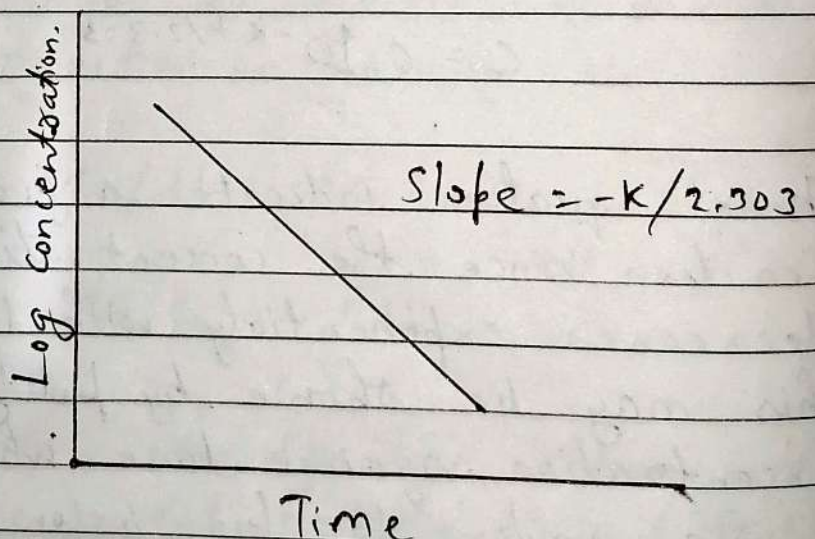 Log Concentration.
Slope = -K/2.303.
Time